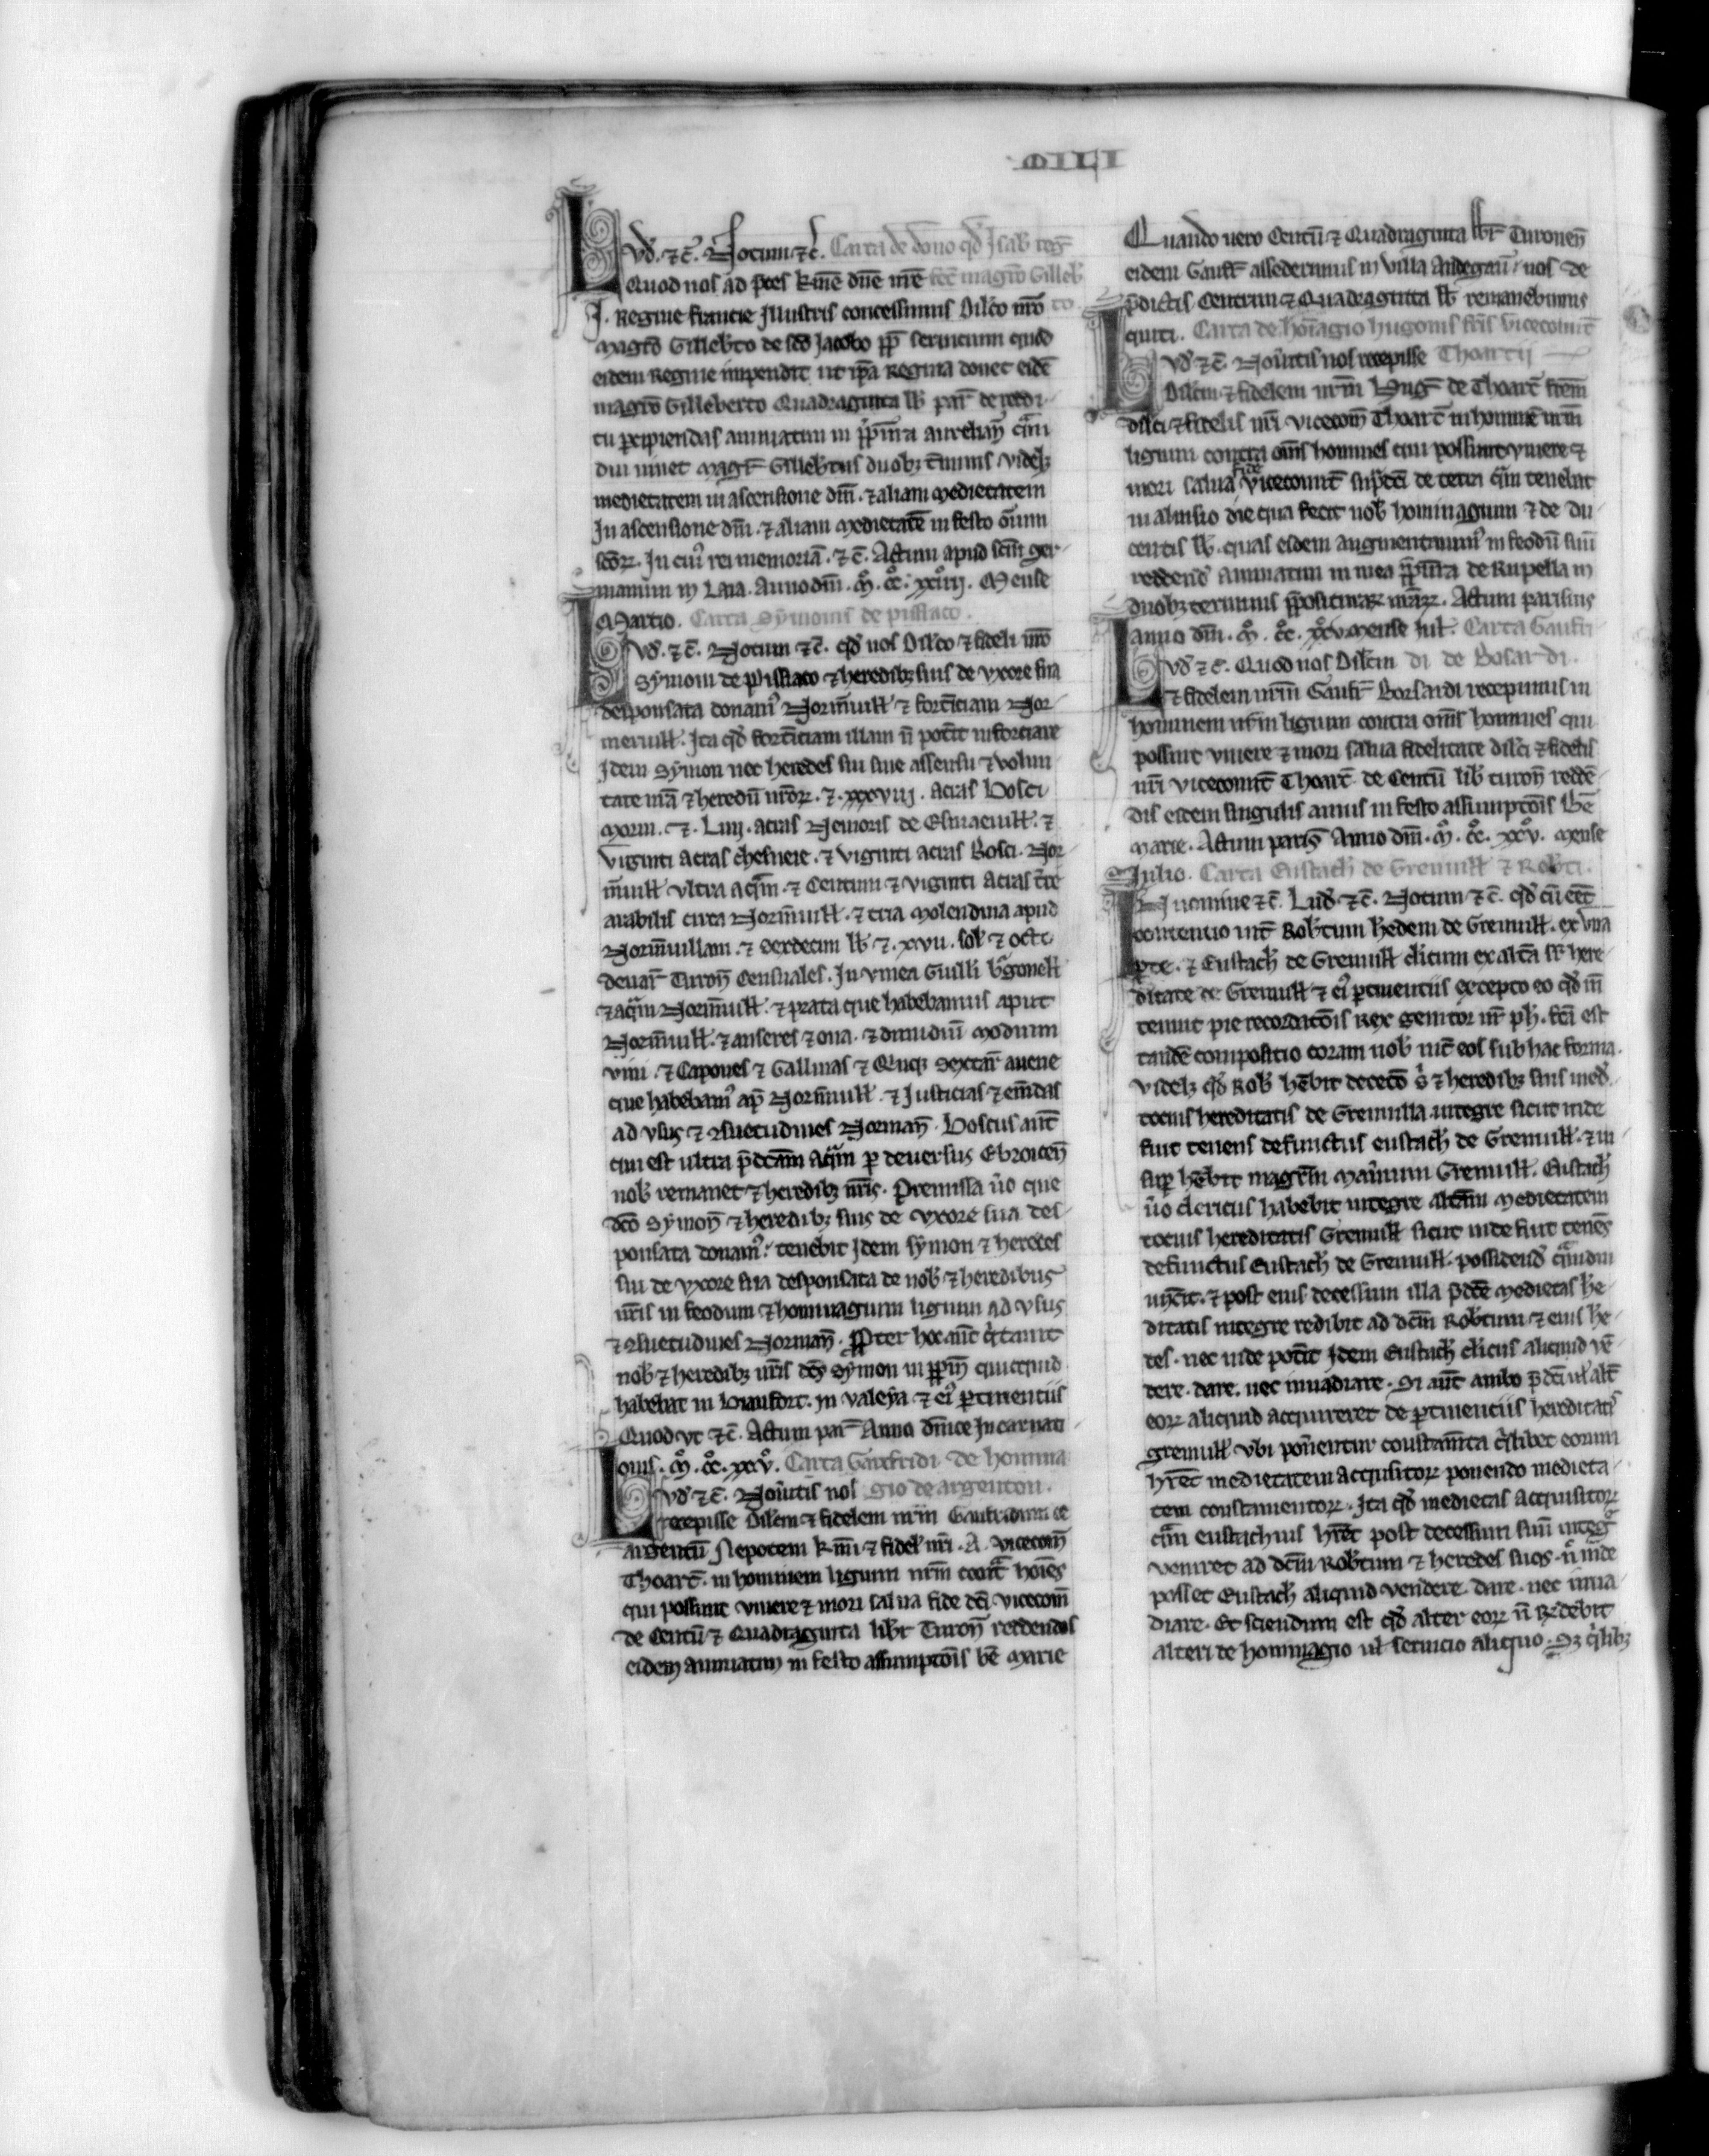 MILI
Lvd̉. ⁊c̃. Notum ⁊c̃. Carta de dono qd̉ Isab̉ reg̃
Quod nos ad p̃ces k̄me dñe nr̃e fec̃ magr̃o Gilleb̉
I. Regine francie Illustris concessimus Dilc̃o nr̃o to
magr̃o Gilleb̃to de sc̃o Jacobo ꝓp̃ seruicium quod
eidem Regine impendit ut ip̃a Regina donet eid̃e
magr̃o Gilleberto Quadraginta lb̉ par̃ de reddi-
tu ꝑcipiendas annuatim in p̃p̃itura aurelian̄ q̃mdi
diu uiuet Magr̃ Gilleb̉tus duobꝫ t̃minis. videlꝫ
medietatem in ascensione dñi. ⁊ aliam medietatem
In ascensione dñi. ⁊ aliam medietatē in festo om̄ium
sc̃oꝝ. In cui᷒ rei memoriā. ⁊c̃. Actum apud sc̃m ger-
manum in Laia. Anno dñi. Mͦ. CCͦ. xxͦiiij. Mense
Martio. Carta Symonis de pissiaco.
Lvd̉. ⁊c̃. Notum ⁊c̃. qd̉ nos Dilc̃o ⁊ fideli nr̃o
Symoni de pissiaco ⁊ heredibꝫ suis de vxore sua
desponsata donam᷒ Norm̃uill̃ ⁊ fort̃iciam Nor-
meruill̃. Ita qd̉ fort̃iciam illam ñ pot̃it infortiare
Idem Symon nec heredes sui sine assensu ⁊ volun-
tate nr̃a ⁊ heredū nr̃oꝝ. ⁊. xxxviij. acras Bosci
Morin. ⁊. Liiij. acras Nemoris de Esmaeuill̃. ⁊
viginti acras chesneie. ⁊ viginti acras Bosci. Nor-
m̃uill̃ vltra aq̃m. ⁊ Centum ⁊ viginti acras t̃re
arabilis circa Norm̃uill̃. ⁊ tria molendina apud
Norm̃uillam. ⁊ Sexdecim lb̉ ⁊. xvii. sol̉ ⁊ octo
denar̃ Turon̄ Censuales. In vinea Guill̃i b̃gonell̃
⁊ aq̃m Norm̃uill̃. ⁊ prata que habebamus aput
Norm̃uill̃. ⁊ anseres ⁊ oua. ⁊ dimidiū modium
vini. ⁊ Capones ⁊ Gallinas ⁊ Quinqꝫ Sextar̃ auene
que habebam᷒ ap̃ Norm̃uill̃. ⁊ Justicias ⁊ em̃das
ad vsus ⁊ ꝯsuetudines Norman̄. Boscus aut̃
qui est ultra p̃dc̃am aq̃m ꝑ deuersus Ebroicen̄
nob̉ remanet ⁊ heredibꝫ nr̃is. Premissa ũo que
dc̃o Symon̄ ⁊ heredibꝫ suis de vxore sua des-
ponsata donam᷒. tenebit Idem symon ⁊ heredes
sui de vxore sua desponsata de nob̉ ⁊ heredibus
nr̃is in feodum ⁊ hommagium ligium ad vsus
⁊ ꝯsuetudines Norman̄. Ꝓpter hoc aut̃ q̃tauit
nob̉ ⁊ heredibꝫ nr̃is dc̃s Symon in p̃p̃m̄ quicquid
habebat in Biaufort. in valeya ⁊ ei᷒ ꝑtinentiis
Quod vt ⁊c̃. Actum par̃ Anno dñice Incarnati-
onis. Mͦ. CCͦ. xxͦv. Carta Gaufridi de homma
Lvd̉ ⁊c̃. Nou̾itis nos gio de argenton.
recepisse Dilc̃m ⁊ fidelem nr̃m Gaufridum de
argentū Nepotem k̄mi ⁊ fidel̉ nr̃i. A. vicecom̄
Thoarc̃. in hominem ligium nr̃m cont̃ hoĩes
qui possunt viuere ⁊ mori salua fide dc̃i vicecom̄
de Centū ⁊ Quadraginta libr̃ Turon̄ reddendos
eidem annuatim in festo assumptōis bẽ Marie
Quando uero Centū ⁊ Quadraginta lbr̃ Turonen̄
eidem Gauf̃r assederimus in villa Andegau̾. nos de
p̃dictis Centum ⁊ Quadraginta lb̉ remanebimus
quiti. Carta de hom̄agio hugonis fr̃is vicecomit̃
Lvd̉ ⁊c̃. Nou̾itis nos recepisse Thoarcij
Dilc̃m ⁊ fidelem nr̃m Hug̃ de Thoarc̃ fr̃em
dilc̃i ⁊ fidelis nr̃i vicecom̄ Thoarc̃ in hominē nr̃m
ligium contra om̄s homines qui possunt viuere ⁊
mori salua fide vicecomit̃ sup̃dc̃i de terra q̃m tenebat
in alnisio die qua fecit nob̉ hommagium ⁊ de du-
centis lb̉. quas eidem augmentauim᷒ in feodū suū
reddend̉ Annuatim in nr̃a p̃p̃itura de Rupella in
duobꝫ terminis p̃positurarꝝ nr̃arꝝ. Actum parisius
anno dñi. Mͦ. CCͦ. xxͦv mense Jul̉. Carta Gaufri
Lvd̉ ⁊c̃. Quod nos Dilc̃m di de Bosardi.
⁊ fidelem nr̃m Gauf̃r Borsardi recepimus in
hominem nr̃m ligium contra om̄is homines qui
possunt viuere ⁊ mori salua fidelitate dilc̃i ⁊ fidelis
nr̃i vicecomit̃ Thoarc̃ de Centū lib̉ turon̄ redden̄-
dis eidem singulis annis in festo assumptōis bẽ
Marie. Actum paris̃ Anno dñi. Mͦ. CCͦ. xxͦv. mense
Julio. Carta Eustach̉ de Greinuill̃ ⁊ Rob̉ti.
In nomine ⁊c̃. Lud̉. ⁊c̃. Notum ⁊c̃. qd̉ cū eēt
contentio int̃ Rob̉tum h̉edem de Greinuill̃. ex vna
ꝑte. ⁊ Eustach̉ de Greinuill̃ cl̃icum ex alt̃a sr̃ here-
ditate de Greinuill̃ ⁊ ei᷒ ꝑtinentiis excepto eo qd̉ in̄
tenuit pie recordatōis Rex genitor nr̃ ph̉. fc̃a est
tandē compositio coram nob̉ int̃ eos sub hac forma.
videlꝫ qd̉ Rob̉ hēbit de cetō s̉ ⁊ heredibꝫ suis med̉.
tocius hereditatis de Greinuilla integre sicut inde
fuit tenens defunctus eustach̉ de Greinuill̃. ⁊ in-
suꝑ hēbit magr̃m Man̉ium Greinuill̃. Eustach̉
ũo clericus habebit integre alt̃am Medietatem
tocius hereditatis Greinuill̃ sicut inde fuit tenēs
defunctus Eustach̉ de Greinuill̃. possidend̉ q̃mdiu
uix̃it. ⁊ post eius decessum illa p̃dc̃e medietas he-
ditatis integre redibit ad dc̃m Rob̉tum ⁊ eius he-
des. nec inde pot̃it Idem Eustach̉ cl̃icus aliquid vē-
dere. dare. nec inuadiare. Si aut̃ ambo p̃dc̃i ul̉ alt̃
eoꝝ aliquid acquireret de ꝑtinentiis hereditatis
greinuill̃ vbi pon̉entur constam̃ta q̃libet eorum
hr̃et medietatem acquisitoꝝ ponendo medieta-
tem constamentoꝝ. Ita qd̉ medietas acquisitoꝝ
q̃m eustachius hr̃et post decessum suū integ̃
veniret ad dc̃m Rob̉tum ⁊ heredes suos. ñ inde
posset Eustach̉ aliquid vendere. dare. nec inua-
diare. Et sciendum est qd̉ alter eoꝝ ñ r̃ndebit
alteri de hommagio ul̉ seruicio aliquo. Sꝫ q̃libꝫ